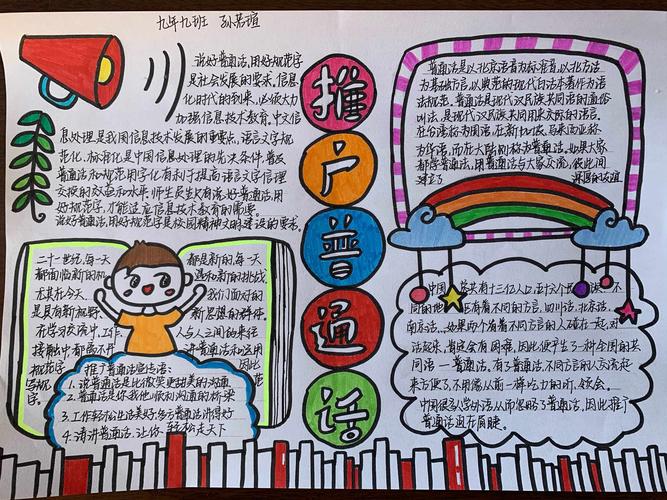 九年九班 孙若瑄
说好普通话,用好规范字
是社会发展的要求。信息
化时代的到来,必须大力
加强信息技术教育。中文信
息处理是我国信息技术发展的重要点,语言文字规
范化、标准化是中国信息处理的先决条件,普及
普通话和规范用字化有利于提高语言文字信理
交报的效率和水平。师生员生只有说好普通话,用
好规范字,才能适应信息技术教育的需要。
说好普通话,用好规范字是校园精神文明建设的要求。
推
广
普
通
话
普通话是以北京语音为标准音,以北方话
为基础方言,以典范的现代白话文著作为语
法规范。普通话是现代汉民族共同语的通俗
叫法,是现代汉民族共同用来交际的语言。
在台湾称为国语,在新加坡、马来西亚称
为华语,而在大陆则称为普通话。如果大家
都学普通话,用普通话与大家交流,彼此间
建立了 深厚的友谊
二十一世纪,每一天
都面临新的机
尤其在今天,
是具有新视野、
在学习交流中、工作、
接触中都离不开
规范字,
写规范
字。
都是新的,每一天
遇和新的挑战,
我们面对的
新思想的群体。
人与人之间的来往
讲普通话和运用
因此
推广普通话宣传语:
1.说普通话是比微笑更甜美的沟通
2.普通话是你我他心灵沟通的桥梁
3.工作轻松生活美好,多亏普通话讲得好
4.请讲普通话,让你轻松走天下
中国 共有十三亿人口,五十六个 族、不
同的地 有着不同的方言。四川话、北京话、
南京话……如果两个有着不同方言的人碰在一起,对
话起来,肯定会有困难,因此便产生了一种全国的共
同语——普通话。有了普通话,不同方言的人交流起
来方便了,不用像从前一样吃力的听、领会。
中国很多人学外语,从而忽略了普通话,因此推广
普通话迫在眉睫。